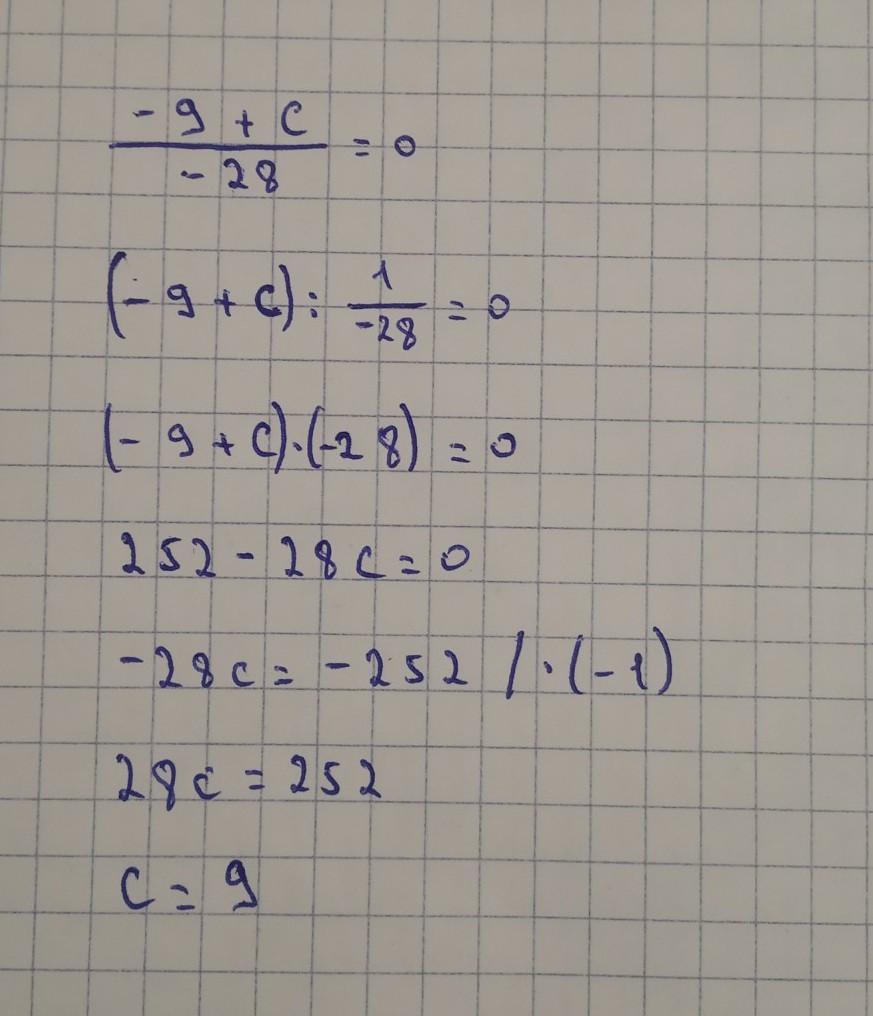 (-9 + c)/(-28) = 0
(-9 + c) : 1/(-28) = 0
(-9 + c)·(-28) = 0
252 - 28c = 0
-28c = -252 /·(-1)
28c = 252
c = 9